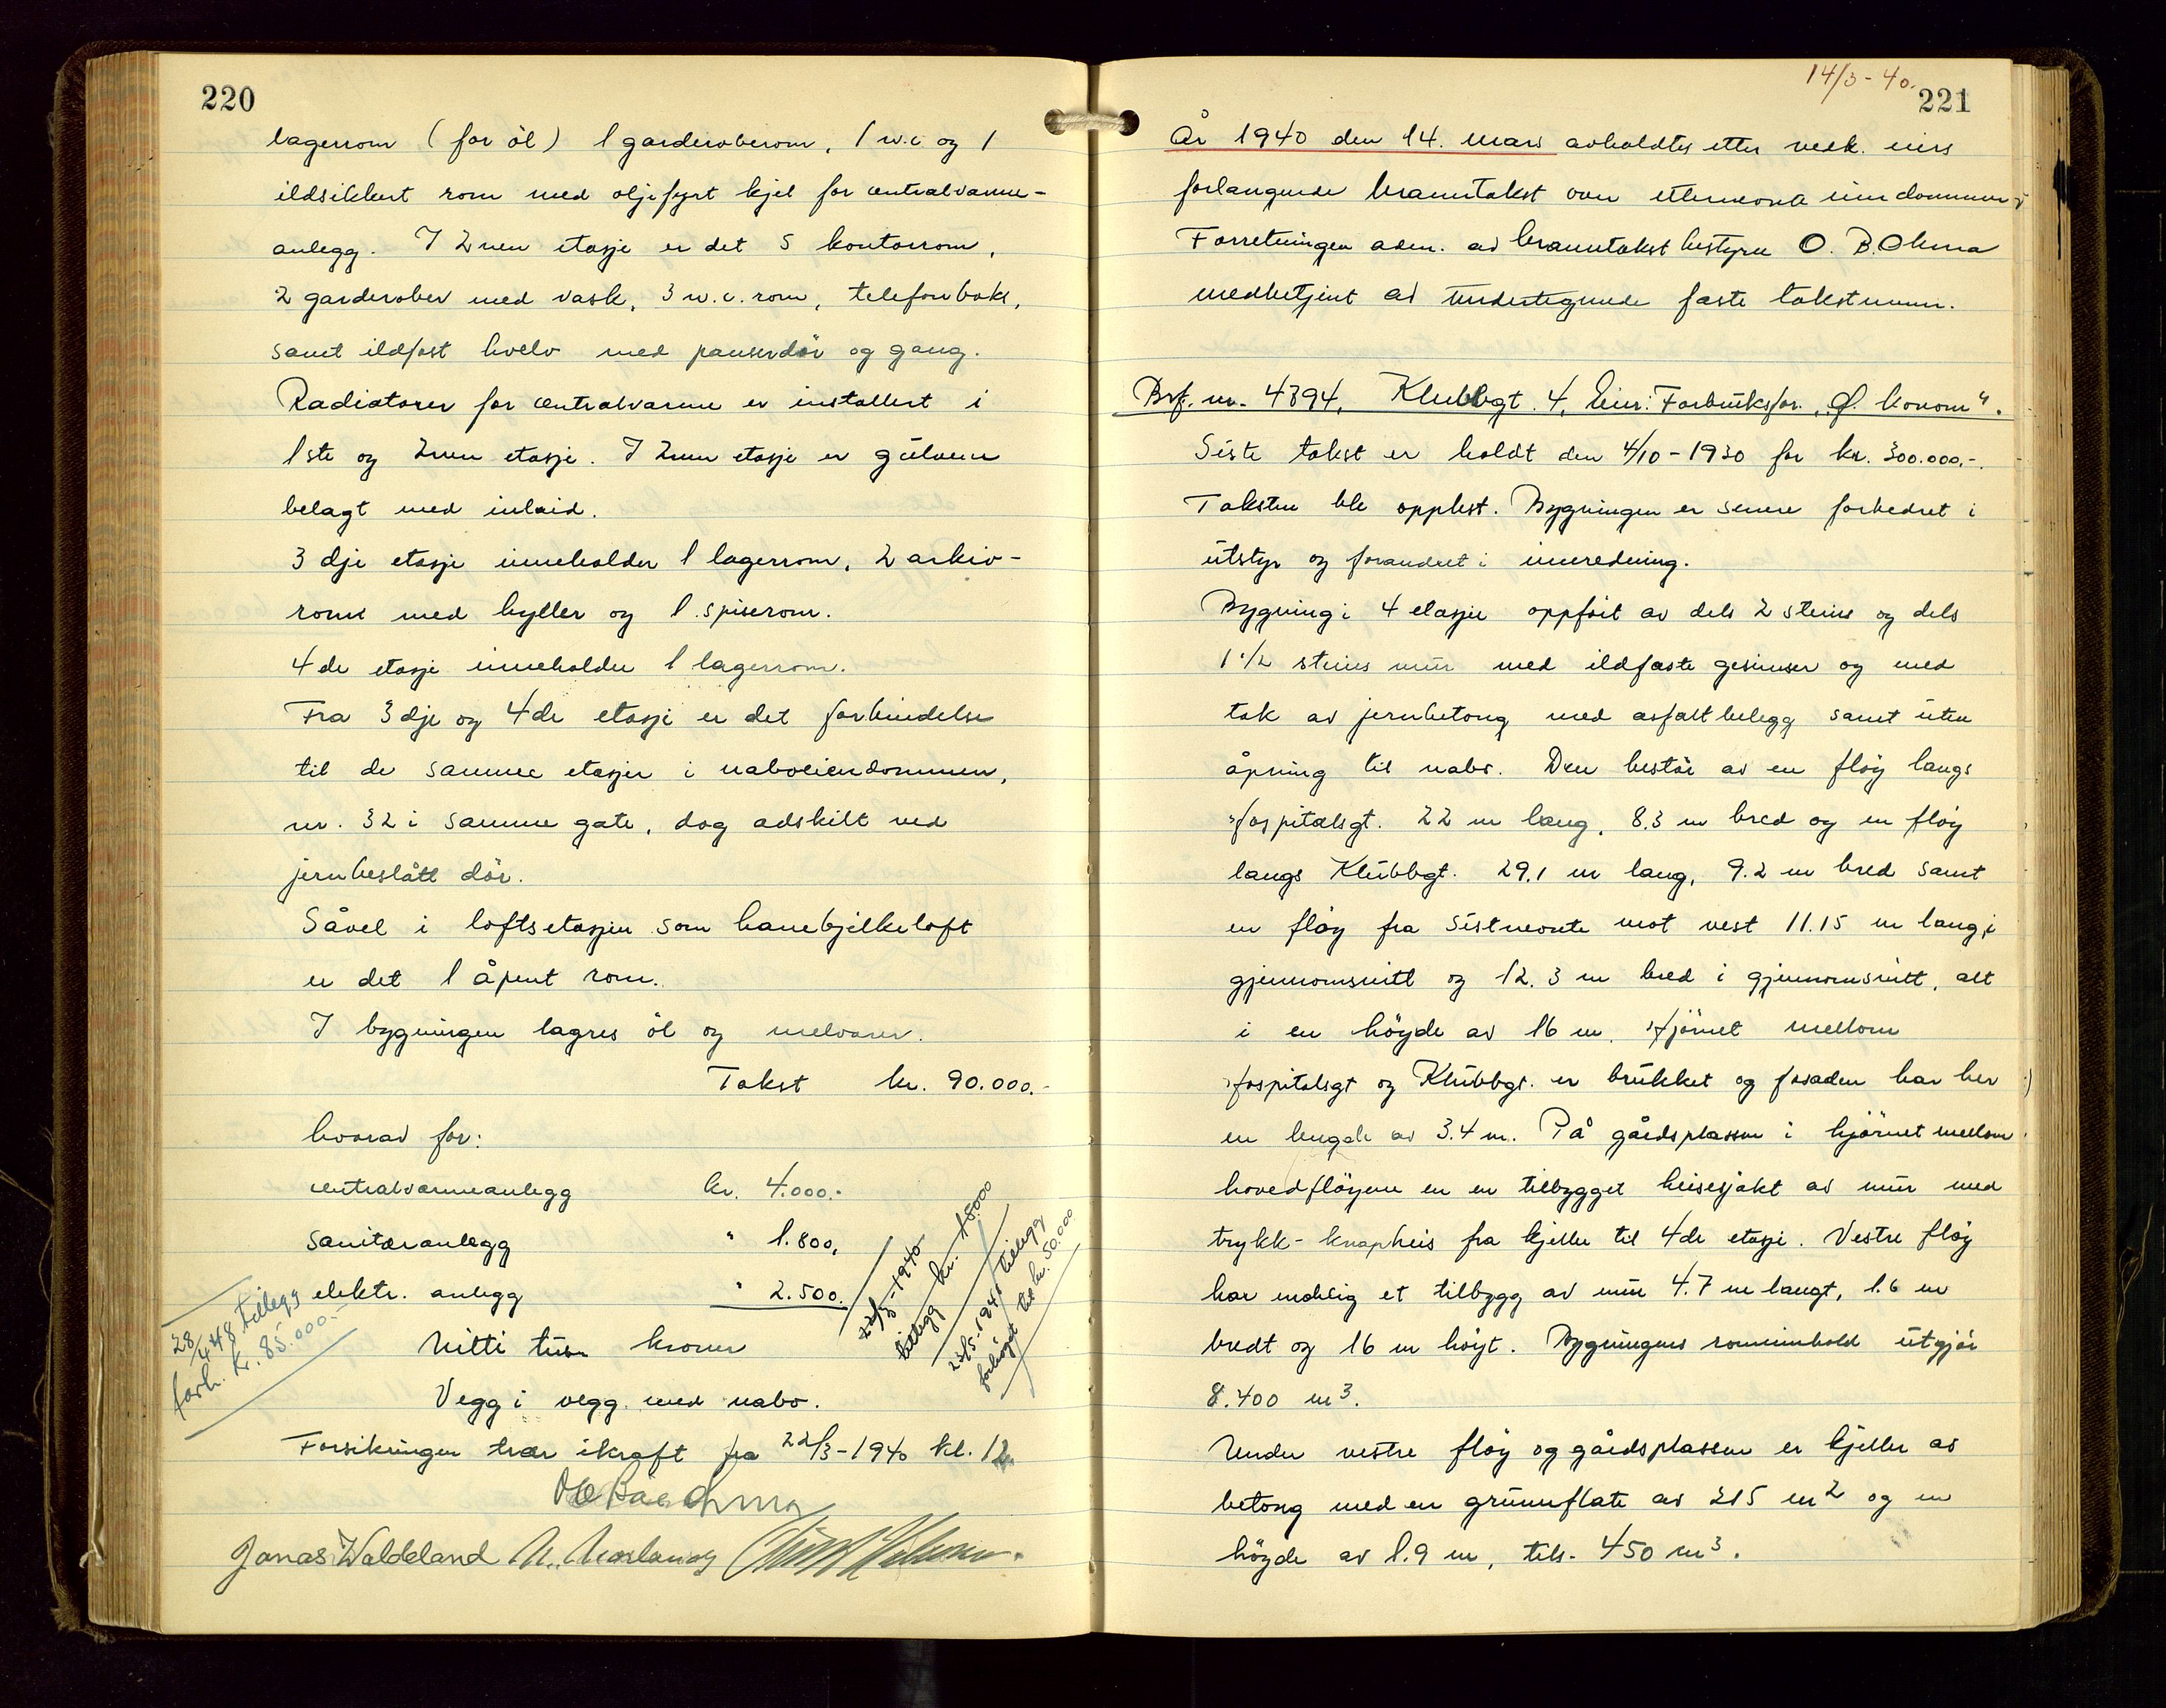 220
lagerrom (for öl) 1 garderoberom, 1 w.c og 1
ildsikkert rom med oljefyrt kjel for centralvarme-
anlegg. I 2nen etasje er det 5 kontorrom,
2 garderober med vask, 3 w.c. rom, telefonboks,
samt ildfast hvelv med panserdör og gang.
Radiatorer for centralvarme er installert i
1ste og 2nen etasje. I 2nen etasje er gulvene
belagt med inlaid.
3dje etasje inneholder 1 lagerrom, 2 arkiv-
rom med hyller og 1 spiserom.
4de etasje inneholder 1 lagerrom.
Fra 3dje og 4de etasje er det forbindelse
til de samme etasjer i naboeiendommen,
nr. 32 i samme gate, dog adskilt ved
jernbeslått dör.
Såvel i loftsetasjen som hanebjelkeloft
er det 1 åpent rom.
I bygningen lagres öl og melvarer.
Takst kr. 90.000.-
hvorav for:
centralvarmeanlegg kr. 4.000.-
sanitæranlegg " 1.800,
elektr. anlegg " 2.500.
22/3-1940
tillegg kr. 15000
23/5-1941 tillegg
forhöyet til kr. 50.000
28/4-48 tillegg
forh. kr. 85.000.-
Nitti tusen kroner
Vegg i vegg med nabo.
Forsikringen trær ikraft fra 22/3-1940 kl. 12
Jonas Waldeland
14/3-40.
221
År 1940 den 14. mars avholdtes etter vedk. eiers
forlangende branntakst over etternevnte eiendommer.
Forretningen adm. av branntakstbestyrer O. B. Ohma
medbetjent av undertegnede faste takstmenn.
Brf. nr. 4394, Klubbgt. 4, Eier: Forbruksfor. "Ö konom".
Siste takst er holdt den 4/10-1930 for kr. 300.000.-.
Taksten ble opplest. Bygningen er senere forbedret i
utstyr og forandret i innredning.
Bygning i 4 etasjer oppfört av dels 2 stens og dels
1 1/2 stens mur med ildfaste gesimser og med
tak av jernbetong med asfaltbelegg samt uten
åpning til nabo. Den består av en flöy langs
Hospitalsgt. 22 m lang, 8.3 m bred og en flöy
langs Klubbgt. 29.1 m lang, 9.2 m bred samt
en flöy fra sistnevnte mot vest 11.15 m lang i
gjennomsnitt og 12.3 m bred i gjennomsnitt, alt
i en höyde av 16 m. Hjörnet mellom
Hospitalsgt og Klubbgt. er brukket og fasaden har her
en lengde av 3.4 m. På gårdsplassen i hjörnet mellom
hovedflöyene er en tilbygget heisesjakt av mur med
trykk-knapheis fra kjeller til 4de etasje. Vestre flöy
har endelig et tilbygg av mur 4.7 m langt, 1.6 m
bredt og 16 m höyt. Bygningens rominnhold utgjör
8.400 m3.
Under vestre flöy og gårdsplassen er kjeller av
betong med en grunnflate av 215 m2 og en
höyde av 1.9 m, tils. 450 m3.